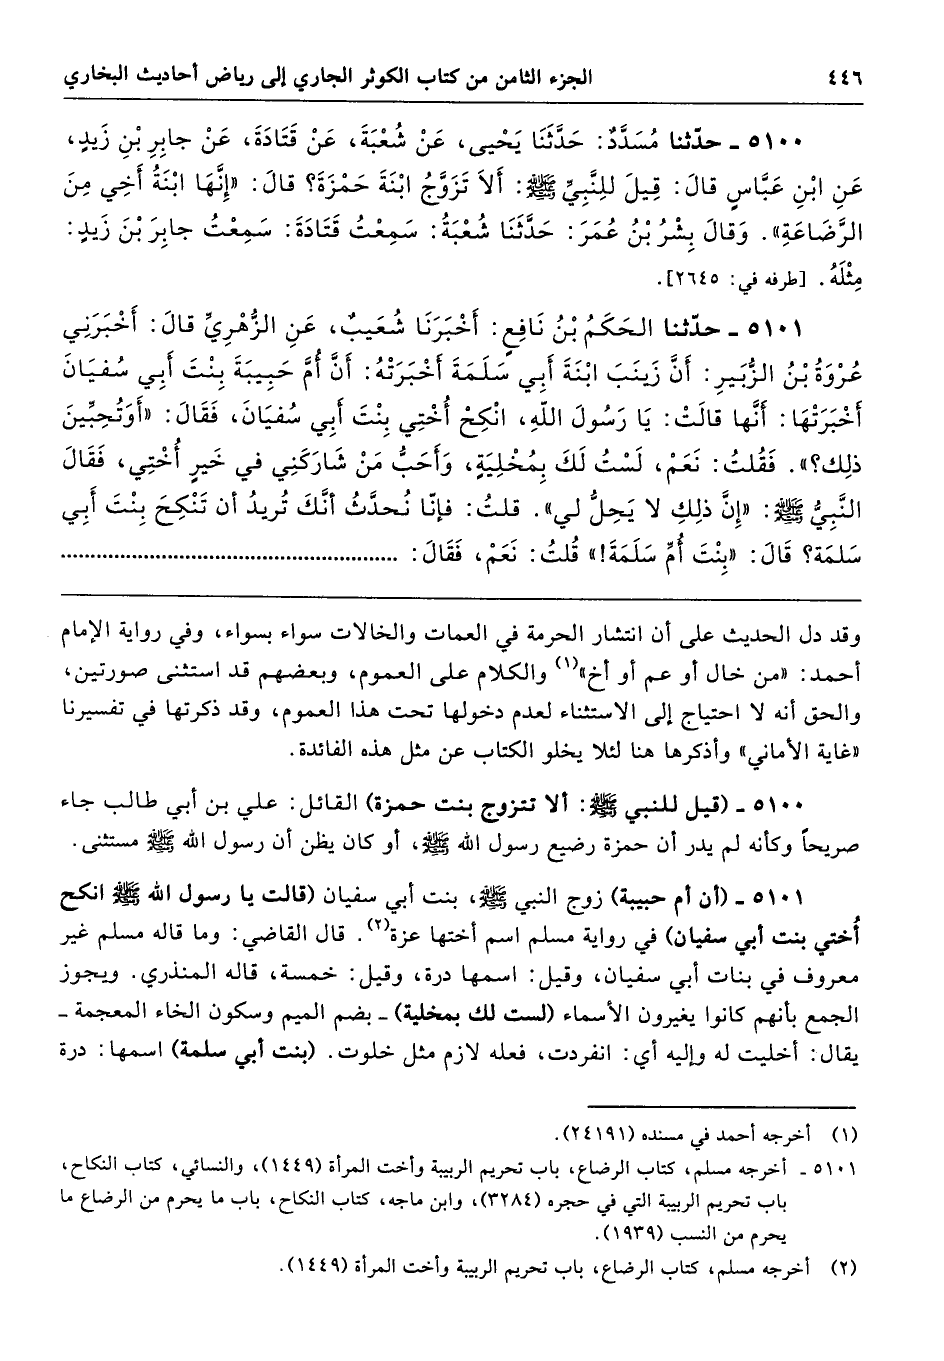 ٤٤٦ الجزء الثامن من كتاب الكوثر الجاري إلى رياض أحاديث البخاري
٥١٠٠ ـ حدّثنا مُسَدَّدٌ: حَدَّثَنَا يَحْيى، عَنْ شُعْبَةَ، عَنْ قَتَادَةَ، عَنْ جابِرِ بْنِ زَيدٍ،
عَنِ ابْنِ عَبَّاسٍ قالَ: قِيلَ للِنَّبِيِّ ﷺ: أَلاَ تَزَوَّجُ ابْنَةَ حَمْزَةَ؟ قالَ: «إِنَّهَا ابْنَةُ أَخِي مِنَ
الرَّضَاعَةِ». وَقالَ بِشْرُ بْنُ عُمَرَ: حَدَّثَنَا شُعْبَةُ: سَمِعْتُ قَتَادَةَ: سَمِعْتُ جابِرَ بْنَ زَيدٍ:
مِثْلَهُ. [طرفه في: ٢٦٤٥].
٥١٠١ ـ حدّثنا الحَكَمُ بْنُ نَافِعٍ: أَخْبَرَنَا شُعَيبٌ، عَنِ الزُّهْرِيِّ قالَ: أَخْبَرَنِي
عُرْوَةُ بْنُ الزُّبَيرِ: أَنَّ زَينَبَ ابْنَةَ أَبِي سَلَمَةَ أَخْبَرَتْهُ: أَنَّ أُمَّ حَبِيبَةَ بِنْتَ أَبِي سُفْيَانَ
أَخْبَرَتْهَا: أَنَّها قالَتْ: يَا رَسُولَ اللّهِ، انْكِحْ أُخْتِي بِنْتَ أَبِي سُفْيَانَ، فَقَالَ: «أَوَتُحِبِّينَ
ذلِكَ؟». فَقُلتُ: نَعَمْ، لَسْتُ لَكَ بِمُخْلِيَةٍ، وَأَحَبُّ مَنْ شَارَكَنِي في خَيرٍ أُخْتِي، فَقَالَ
النَّبِيُّ ﷺ: «إِنَّ ذلِكِ لا يَحِلُّ لي». قلتُ: فإنّا نُحدَّثُ أنَّكَ تُريدُ أن تَنْكِحَ بِنْتَ أَبي
سَلمَة؟ قَالَ: «بِنْتَ أُمِّ سَلَمَةَ!» قُلتُ: نَعَمْ، فَقَالَ: ........................................
وقد دل الحديث على أن انتشار الحرمة في العمات والخالات سواء بسواء، وفي رواية الإمام
أحمد: «من خال أو عم أو أخ»(١) والكلام على العموم، وبعضهم قد استثنى صورتين،
والحق أنه لا احتياج إلى الاستثناء لعدم دخولها تحت هذا العموم، وقد ذكرتها في تفسيرنا
«غاية الأماني» وأذكرها هنا لئلا يخلو الكتاب عن مثل هذه الفائدة.
٥١٠٠ ـ (قيل للنبي ﷺ: ألا تتزوج بنت حمزة) القائل: علي بن أبي طالب جاء
صريحاً وكأنه لم يدر أن حمزة رضيع رسول الله ﷺ، أو كان يظن أن رسول الله ﷺ مستثنى.
٥١٠١ ـ (أن أم حبيبة) زوج النبي ﷺ، بنت أبي سفيان (قالت يا رسول الله ﷺ انكح
أُختي بنت أبي سفيان) في رواية مسلم اسم أختها عزة(٢). قال القاضي: وما قاله مسلم غير
معروف في بنات أبي سفيان، وقيل: اسمها درة، وقيل: خمسة، قاله المنذري. ويجوز
الجمع بأنهم كانوا يغيرون الأسماء (لست لك بمخلية) ـ بضم الميم وسكون الخاء المعجمة ـ
يقال: أخليت له وإليه أي: انفردت، فعله لازم مثل خلوت. (بنت أبي سلمة) اسمها: درة
(١) أخرجه أحمد في مسنده (٢٤١٩١).
٥١٠١ ـ أخرجه مسلم، كتاب الرضاع، باب تحريم الربيبة وأخت المرأة (١٤٤٩)، والنسائي، كتاب النكاح،
باب تحريم الربيبة التي في حجره (٣٢٨٤)، وابن ماجه، كتاب النكاح، باب ما يحرم من الرضاع ما
يحرم من النسب (١٩٣٩).
(٢) أخرجه مسلم، كتاب الرضاع، باب تحريم الربيبة وأخت المرأة (١٤٤٩).